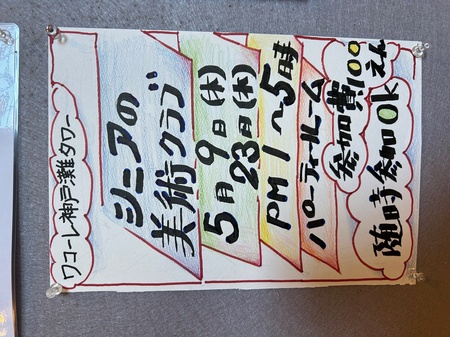 ワコーレ神戸灘タワー
シニアの
美術クラブ
5月9日(木)
23日(木)
PM1〜5時
パーティールーム
参加費100えん
随時参加Ok